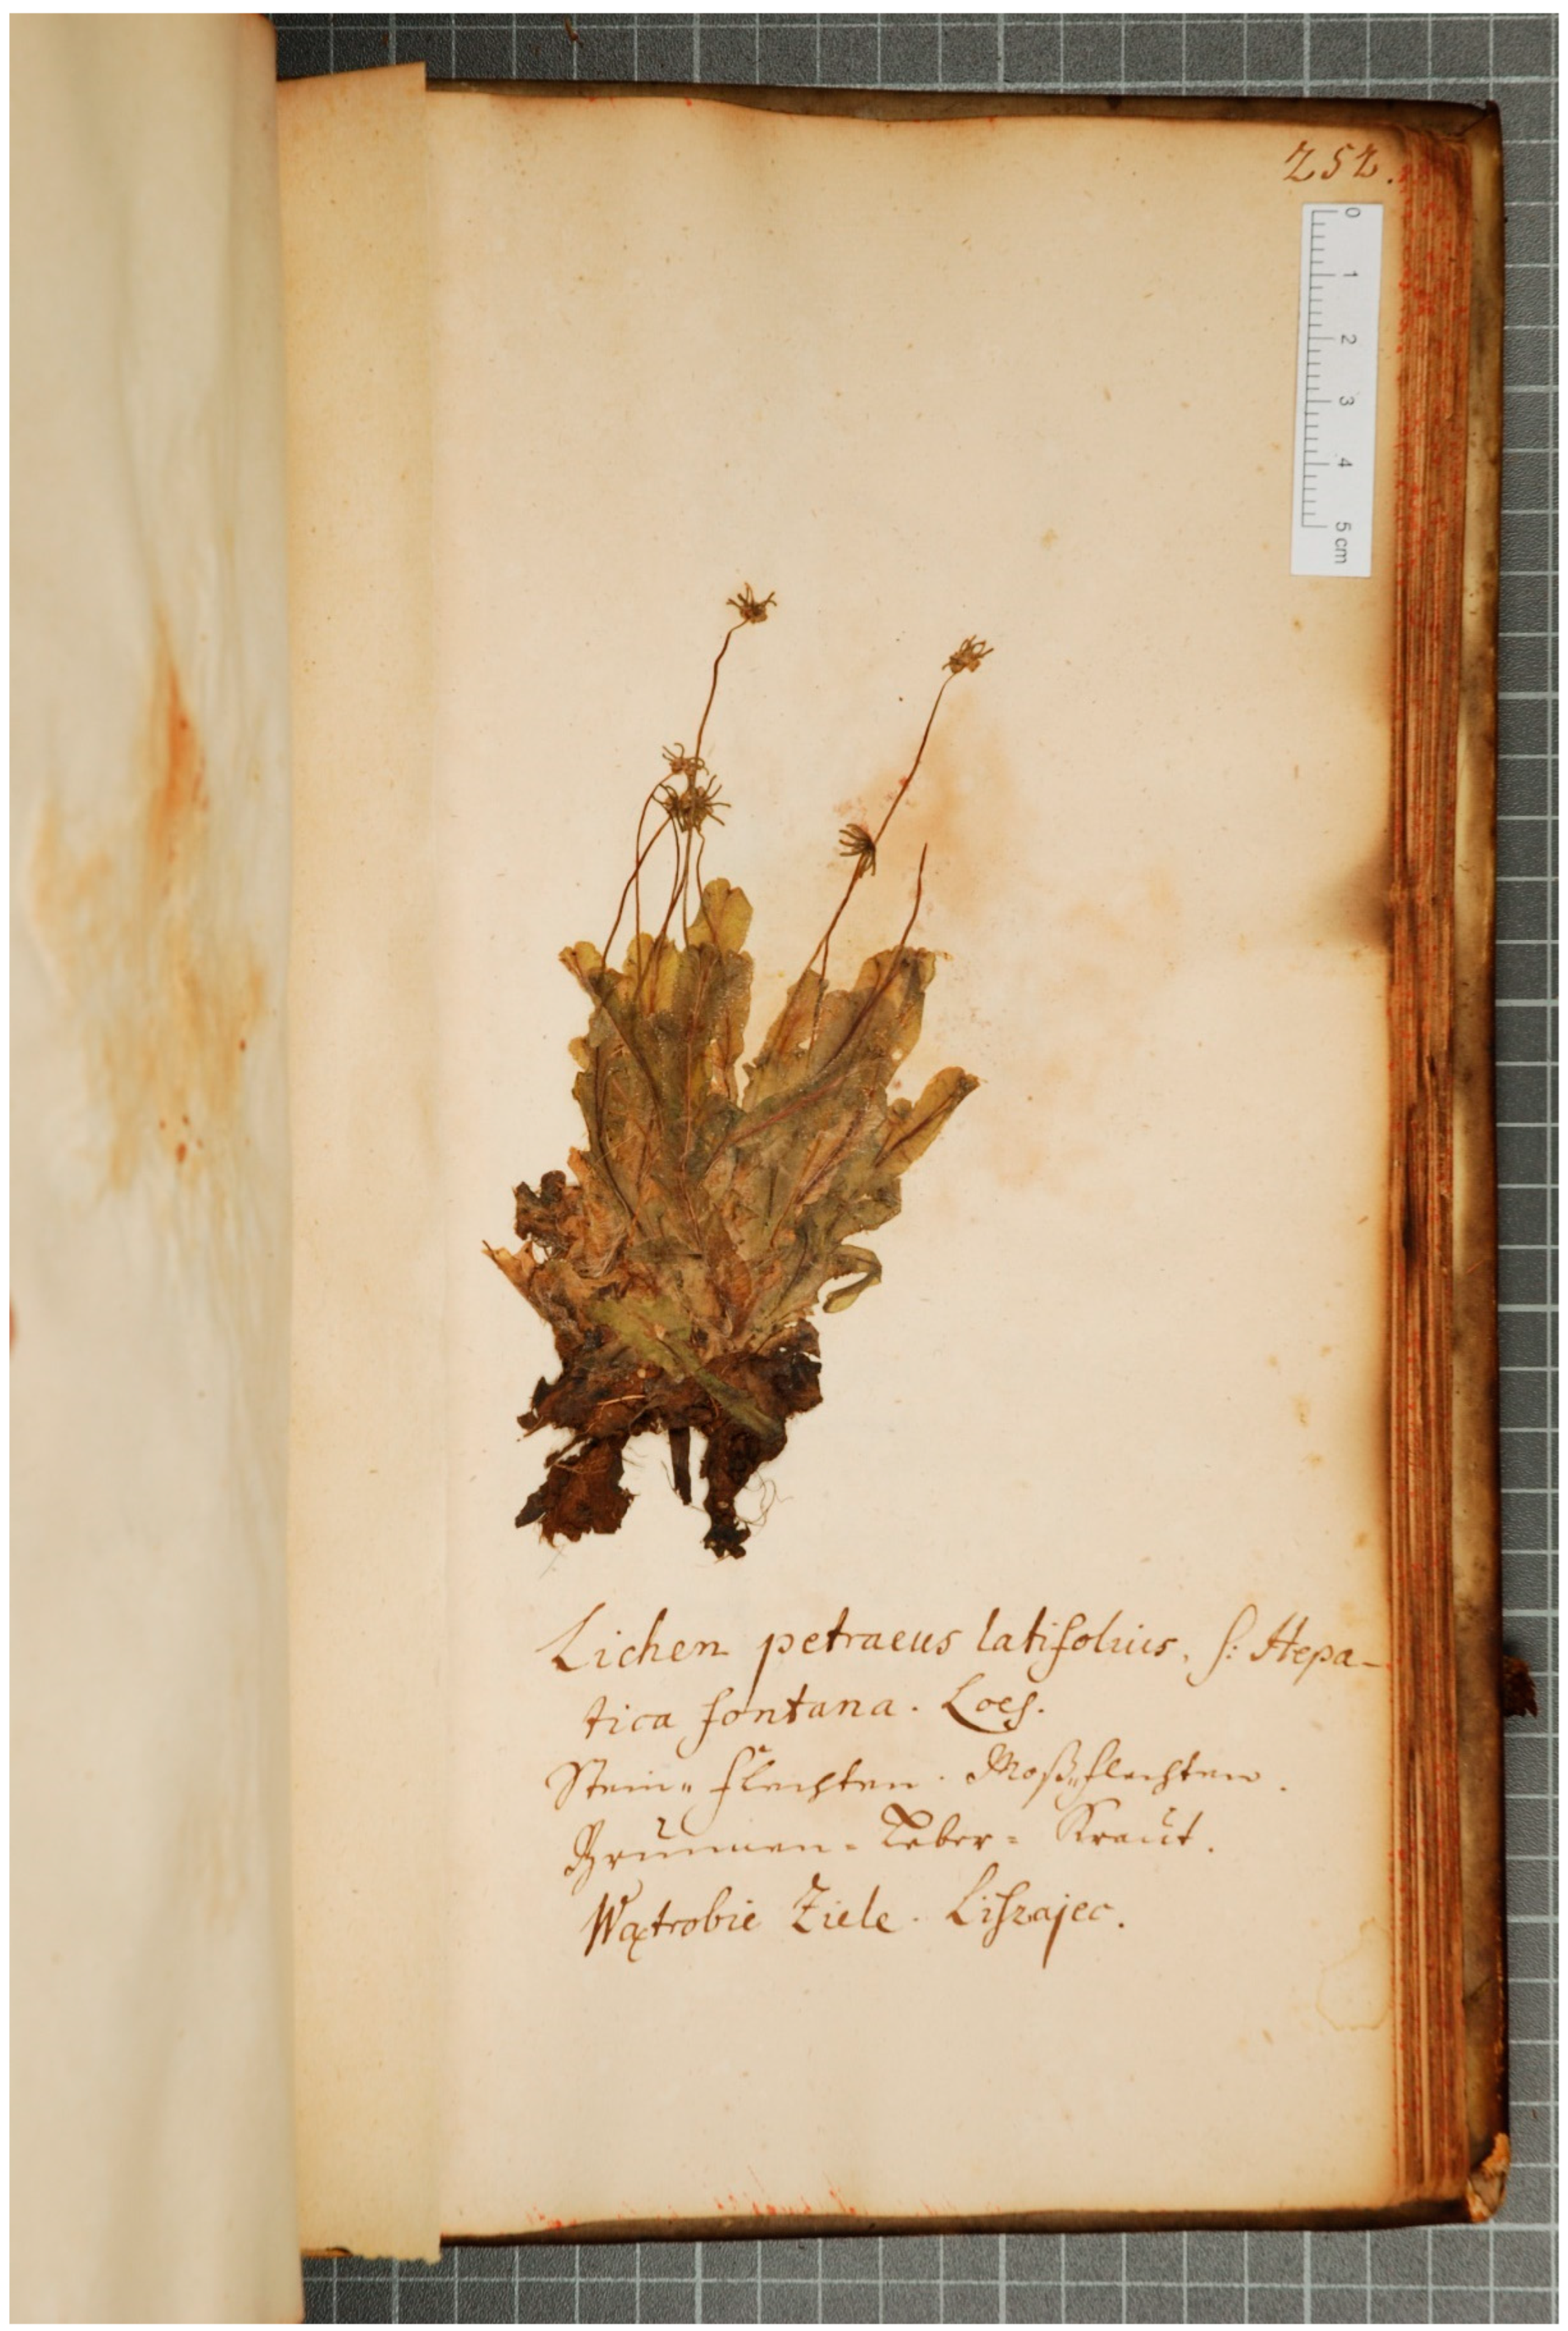 252.
0 1 2 3 4 5 cm
Lichen petraeus latifolius. s: Hepa-
tica fontana. Loes.
Stein„flechten. Moß„flechten.
Brunnen-Leber= Kraut.
Wątrobie Ziele. Liszajec.